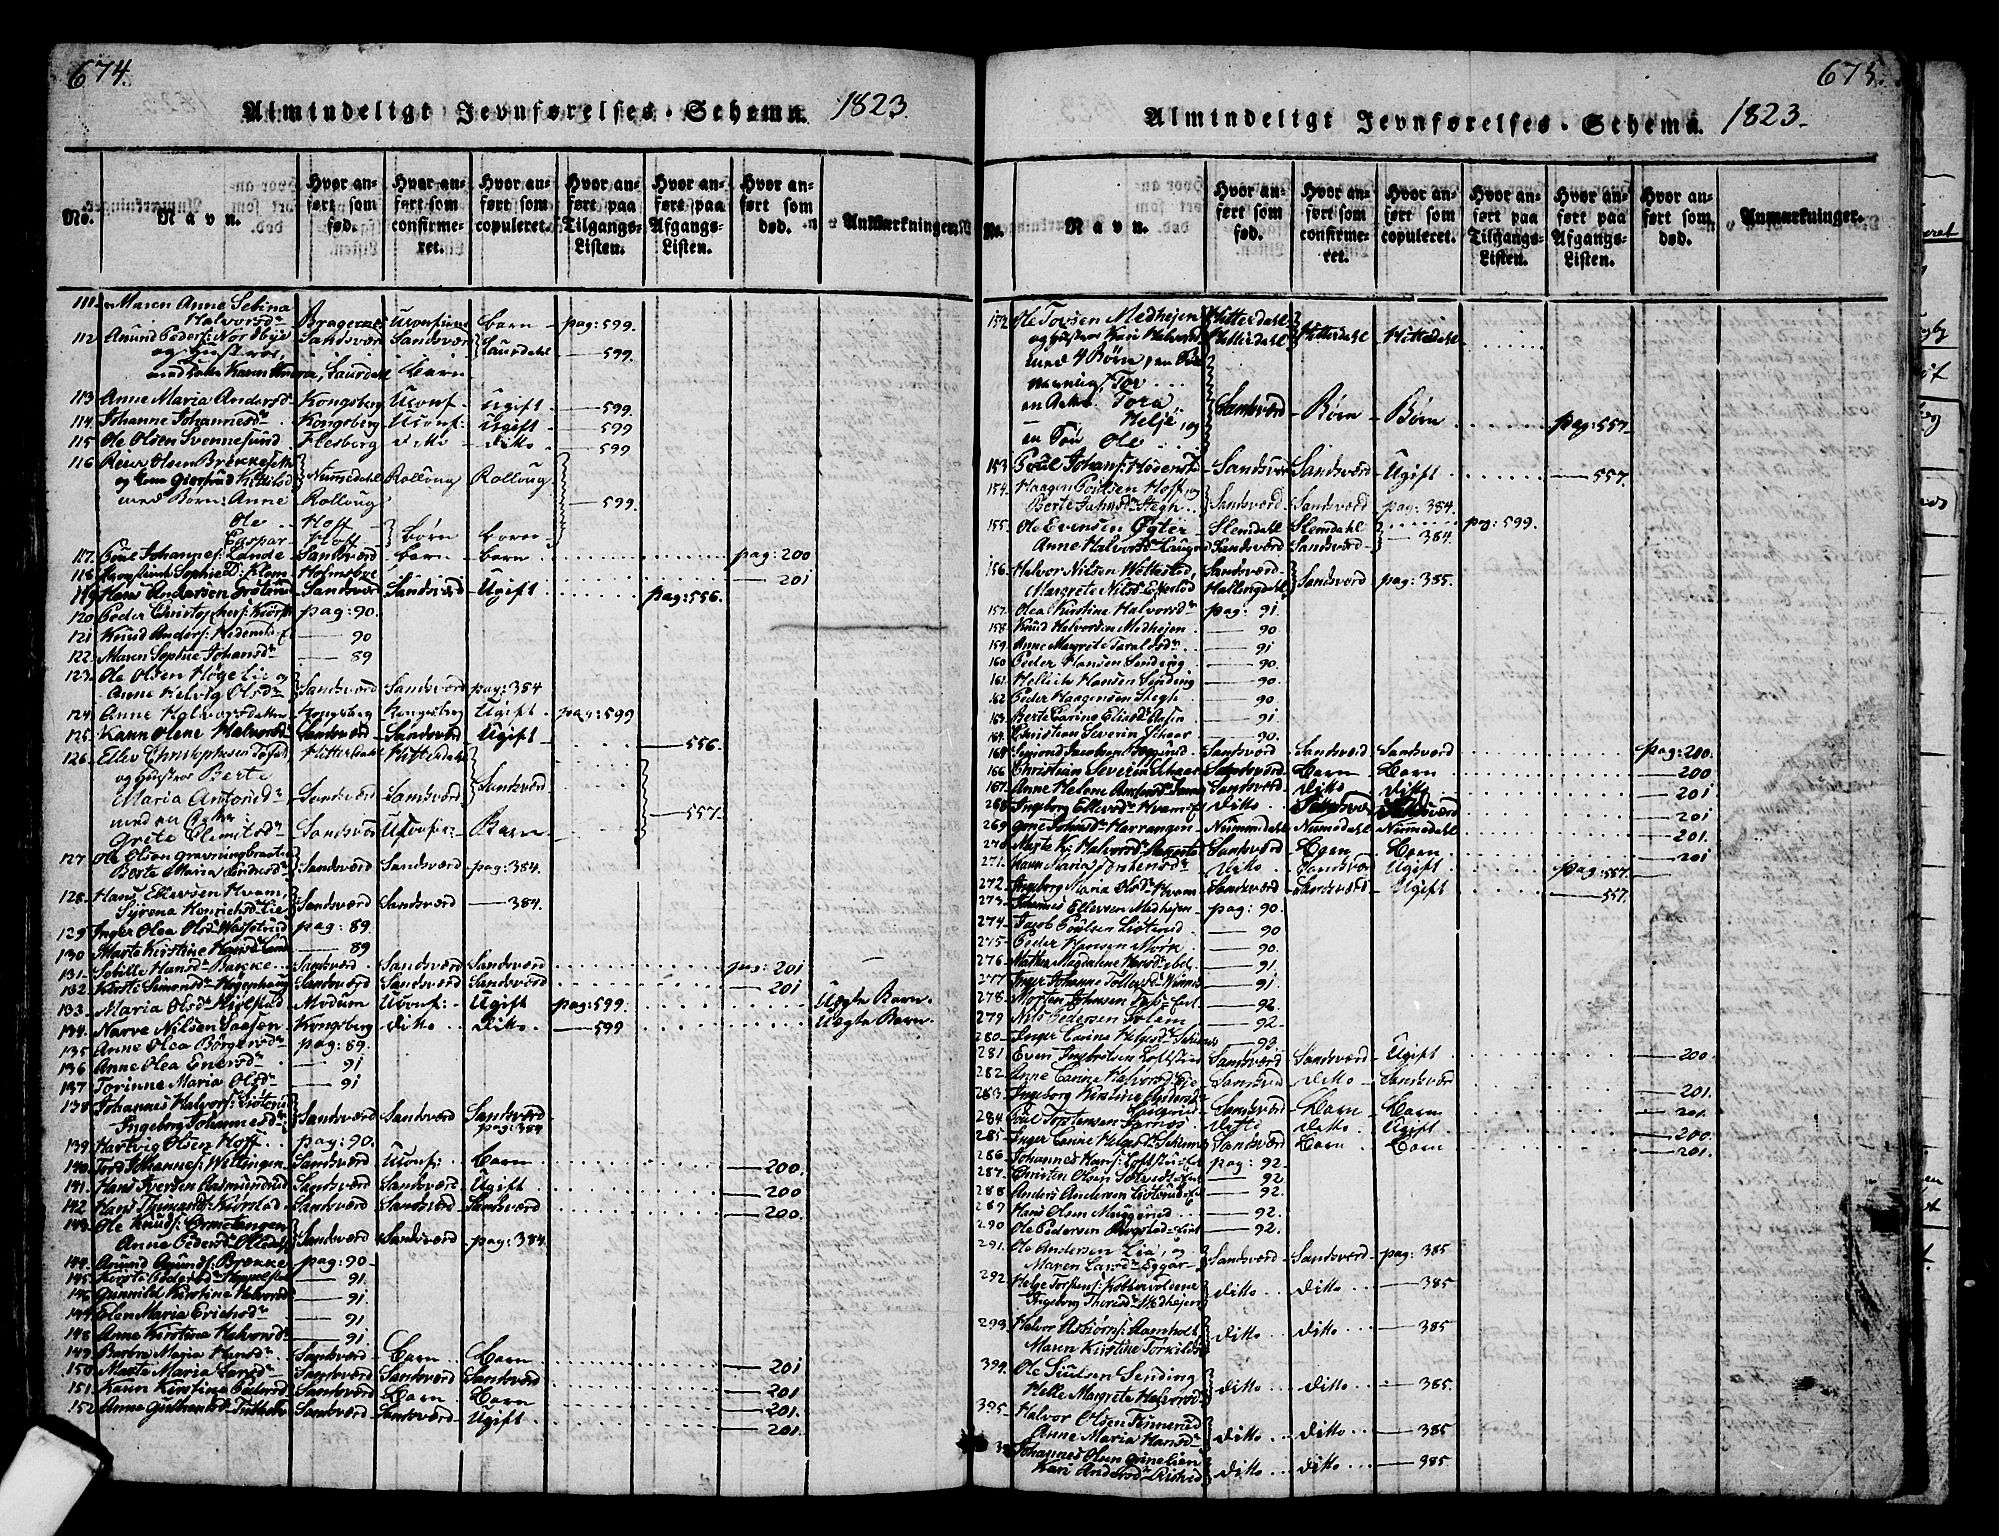 674.
Almindeligt Jevnførelses-Schema. 1823.
No.
Navn.
Hvor anført som fød.
Hvor anført som confirmeret.
Hvor anført som copuleret.
Hvor anført paa Tilgangs-Listen.
Hvor anført paa Afgangs-Listen.
Hvor anført som død.
Anmærkninger.
111. Maren Anne Sebina
Halvorsd. Bragernes Uconfirm barn pag: 599.
112 Amund Peders: Nordbye Sandsværd Sandsværd
og Hustroe, Saurdahl 599.
Saurdahl Barn
113 Anne Maria Andersd. Kongsberg Uconf. Ugift 599.
114. Johanne Johannesd. Kongsberg Uconf: Ugift 599
115 Ole Olsen Svennesund Flesberg ditto ditto 599
116 Reier Olsen
og Kone Numedahl Rolloug Rolloug
med Børn: Anne Rolloug 599.
Ole Hoff
Caspar Hoff Børn børn
117. Poul Johannes: Lande Sandsværd barn barn pag: 200
118 Sophie D: Klem Holmsboe 201
119 Hans Andersen Sandsværd Sandsværd Ugift pag: 556.
120 Peder Christophers: pag: 90.
121 Knud Anders: Hedenst. 90
122. Maren Sophie Johansd. 89
123. Ole Olsen Høge Lie og
Anne Helvig Olsd. Sandsværd Sandsværd pag: 384
124. Anne Halvorsdatter Kongsberg Kongsberg Ugift pag: 599
125. Karen Olene Halvorsd. Sandsværd Sandsværd Ugift 556.
126. Ellev Christophersen Hitterdahl Hitterdahl
og Hustroe Berte Sandsværd
Maria Antonsd. Sandsværd Sandsværd
med en 557.
Grete Olsd. Sandsværd Uconf: Barn
127 Ole Olsen
Berte Maria Sandsværd Sandsværd pag: 384.
128. Hans Ellevsen Hvam
Syrena Henrichsd. Lie Sandsværd Sandsværd 384.
129 Inger Olea Olsd. pag: 89.
130 Marte Kirstine Hansd. 89
131. Sebille Hansd. Bakke Sandsværd Sandsværd Sandsværd pag: 201
132. Kirsti Simonsd. Sandsværd Sandsværd Sandsværd 201
133. Maria Olsd. Modum Uconf: Ugift pag: 599. Uægte Barn.
134. Narve Nilsen Saasen Kongsberg ditto ditto 599 Uægte Barn.
135 Anne Olea Børgersd. pag: 89.
136 Anne Olea Enersd. 91
137 Torinne Maria Olsd. 91
138 Johannes Halvors:
Ingeborg Johannesd. Sandsværd Sandsværd Sandsværd pag: 384
139. Hartvig Olsen Hoff pag: 90.
140. Tord Johannes: Wellingen Sandsværd Uconf: Barn 200.
141. Hans Iversen Sandsværd Sandsværd Ugift 200
142 Hans Sandsværd Sandsværd Sandsværd 200.
143. Ole Knuds:
Anne Pedersd. Sandsværd Sandsværd pag: 384.
144. Amund Amunds: Brekke pag: 90
145. Kirsti Pedersd. 91
146 Gunnild Kirstine Halvorsd. 91.
147 Elen Maria Erichsd. 91
148 Anne Kirstina Halvorsd. 91
149. Barbra Maria Hansd. Sandsværd Barn Barn 201
150. Marte Maria Larsd. Sandsværd Sandsværd Sandsværd
151. Karen Kirstina Pedersd. Sandsværd Barn Barn 201
152 Anna Sandsværd Sandsværd Ugift 201.
201.
675.
Almindeligt Jevnførelses-Schema. 1823.
No.
Navn.
Hvor anført som fød.
Hvor anført som confirmeret.
Hvor anført som copuleret.
Hvor anført paa Tilgangs-Listen.
Hvor anført paa Afgangs-Listen.
Hvor anført som død.
Anmærkninger.
152 Ole Tovsen Medhejen Hitterdahl
og Hustroe Kari Halvorsd. Hitterdahl Hitterdahl Hitterdahl
med 4 Børn, en Søn
Tov
en Tora Sandsværd Børn Børn pag: 557.
Helje, og
en Søn Ole
153 Poul Johans: Sandsværd Sandsværd Ugift 557.
154. Haagen Hoff, og
Berte Stegh Sandsværd Sandsværd pag: 384.
155. Ole Evensen Slemdahl Slemdahl pag: 599.
Anne Halvorsd. Sandsværd Sandsværd 384.
156. Halvor Nilsen Wettestad, Sandsværd
Margrete Nilsd. Hallingdahl Sandsværd pag: 385.
157. Olea Kirstine Halvorsd. pag: 91.
158. Knud Halvorsen Medhejen 90.
159. Anne Margrete Taraldsd. 91
160 Peder Hansen Sending 90.
161. Hellich Hansen Sending 90.
162 Peder Haagensen Stegh 90.
163. Berte Carine Elisd. 91.
164. Christian Severin Schaar 90.
165 Sandsværd Sandsværd Sandsværd pag: 200.
166 Christian Severin Schaar Sandsværd Barn Barn 200
167. Anne Helene Sandsværd ditto ditto 201
268 Ingeborg Ellevsd. Hvam ditto Sandsværd Sandsværd 201
269 Johnsd. Harrangen Nummedahl Numedahl Numedahl 201.
270 Marte K: Halvorsd. Sandsværd Barn Barn 201
271. Maria ditto Sandsværd Ugift pag: 557.
272. Ingeborg Maria Olsd. Hvam Sandsværd Sandsværd Ugift 557.
273. Johannes Ellevsen Medhejen pag: 90.
274. Jacob Poulsen 90
275 Peder Hansen Mørk 90.
276 Magdalene Hansd. 91.
277 Inger Johanne Tollefsd. 91.
278. Morten Johnsen 92.
279 Nils Pedersen Solem 92.
280 Inger Carine Helgesd. 92
281. Even Sandsværd Sandsværd Ugift 200.
282. Anne Carine Halvorsd. Lie Sandsværd ditto Sandsværd
283. Ingeborg Kirstine Andersd. 201.
Sandsværd Barn Barn 201.
284. Poul Torstensen ditto ditto Ugift 200.
285. Inger Carine Helgesd. Sandsværd Barn Barn 201.
286 Johannes Hans: pag: 92.
287. Christen Olsen 92
288 Anders Andersen 92.
289 Hans Olsen 92.
290 Ole Pedersen 92.
291. Ole Andersen Lia, og
Maren Larsd. Eggar Sandsværd Sandsværd pag: 385
292. Helge Torstens:
Ingeborg Thoresd. Medhejen ditto ditto 385
293. Halvor Asbiørns: Aamholt
Maren Kirstine Torkildsd. ditto ditto 385
394. Ole Siulsen Sending
Helle Margrete Halvorsd. ditto ditto 385.
395. Halvor Olsen Tinnerud
Anne Maria Hansd. ditto ditto 385
Johannes Olsen
Kari Andersd. ditto ditto 385.